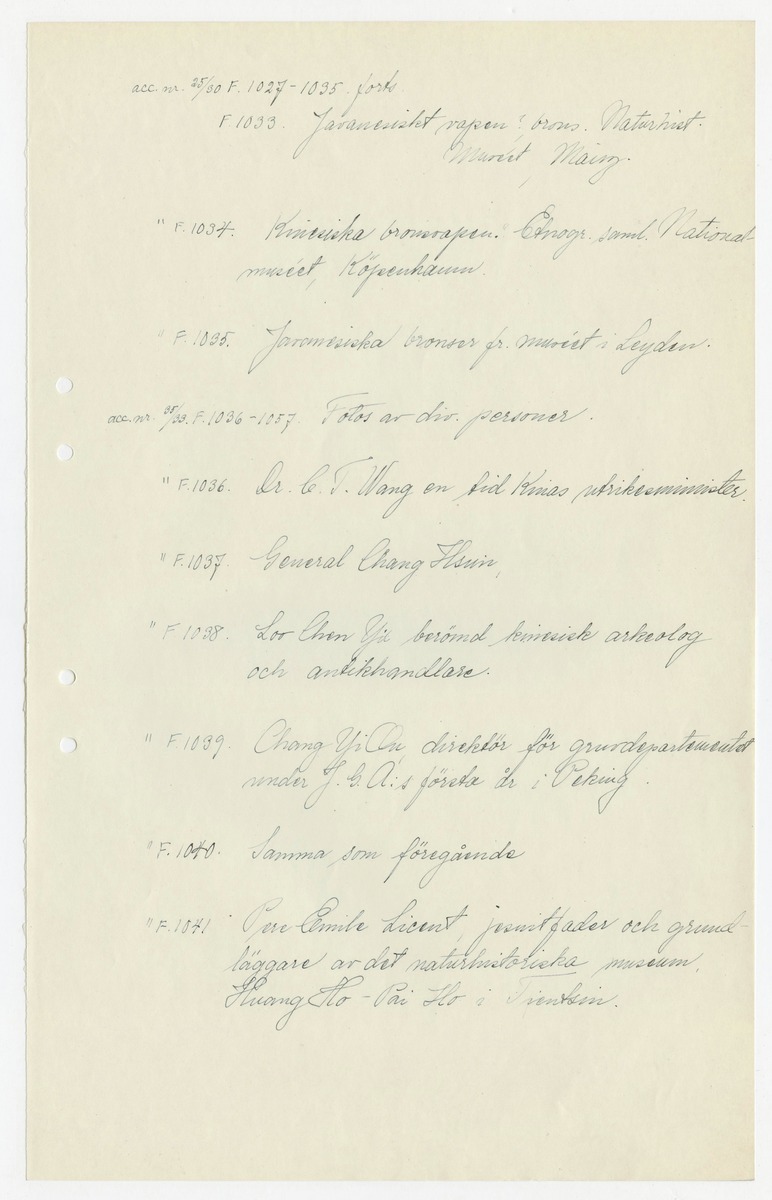 acc. nr. 25/30 F. 1027-1035. forts.
F. 1033. Javanesiskt vapen i brons. Naturhist.
Muséet, Mainz.
" F. 1034. Kinesiska bronsvapen. Etnogr. saml. National-
muséet, Köpenhamn.
" F. 1035. Javanesiska bronser fr. muséet i Leyden.
acc. nr. 35/33. F. 1036-1057. Fotos av div. personer.
" F. 1036. Dr. C. T. Wang en tid Kinas utrikesminister.
" F. 1037. General Chang Hsün,
" F. 1038. Loo Chen Yü berömd kinesisk arkeolog
och antikhandlare.
" F. 1039. Chang Yi Ou, direktör för gruvdepartementet
under J. G. A:s första år i Peking.
" F. 1040. Samma som föregående
" F. 1041 Pere Emile Licent, jesuitfader och grund-
läggare av det naturhistoriska museum,
Huang Ho - Pai Ho i Tientsin.